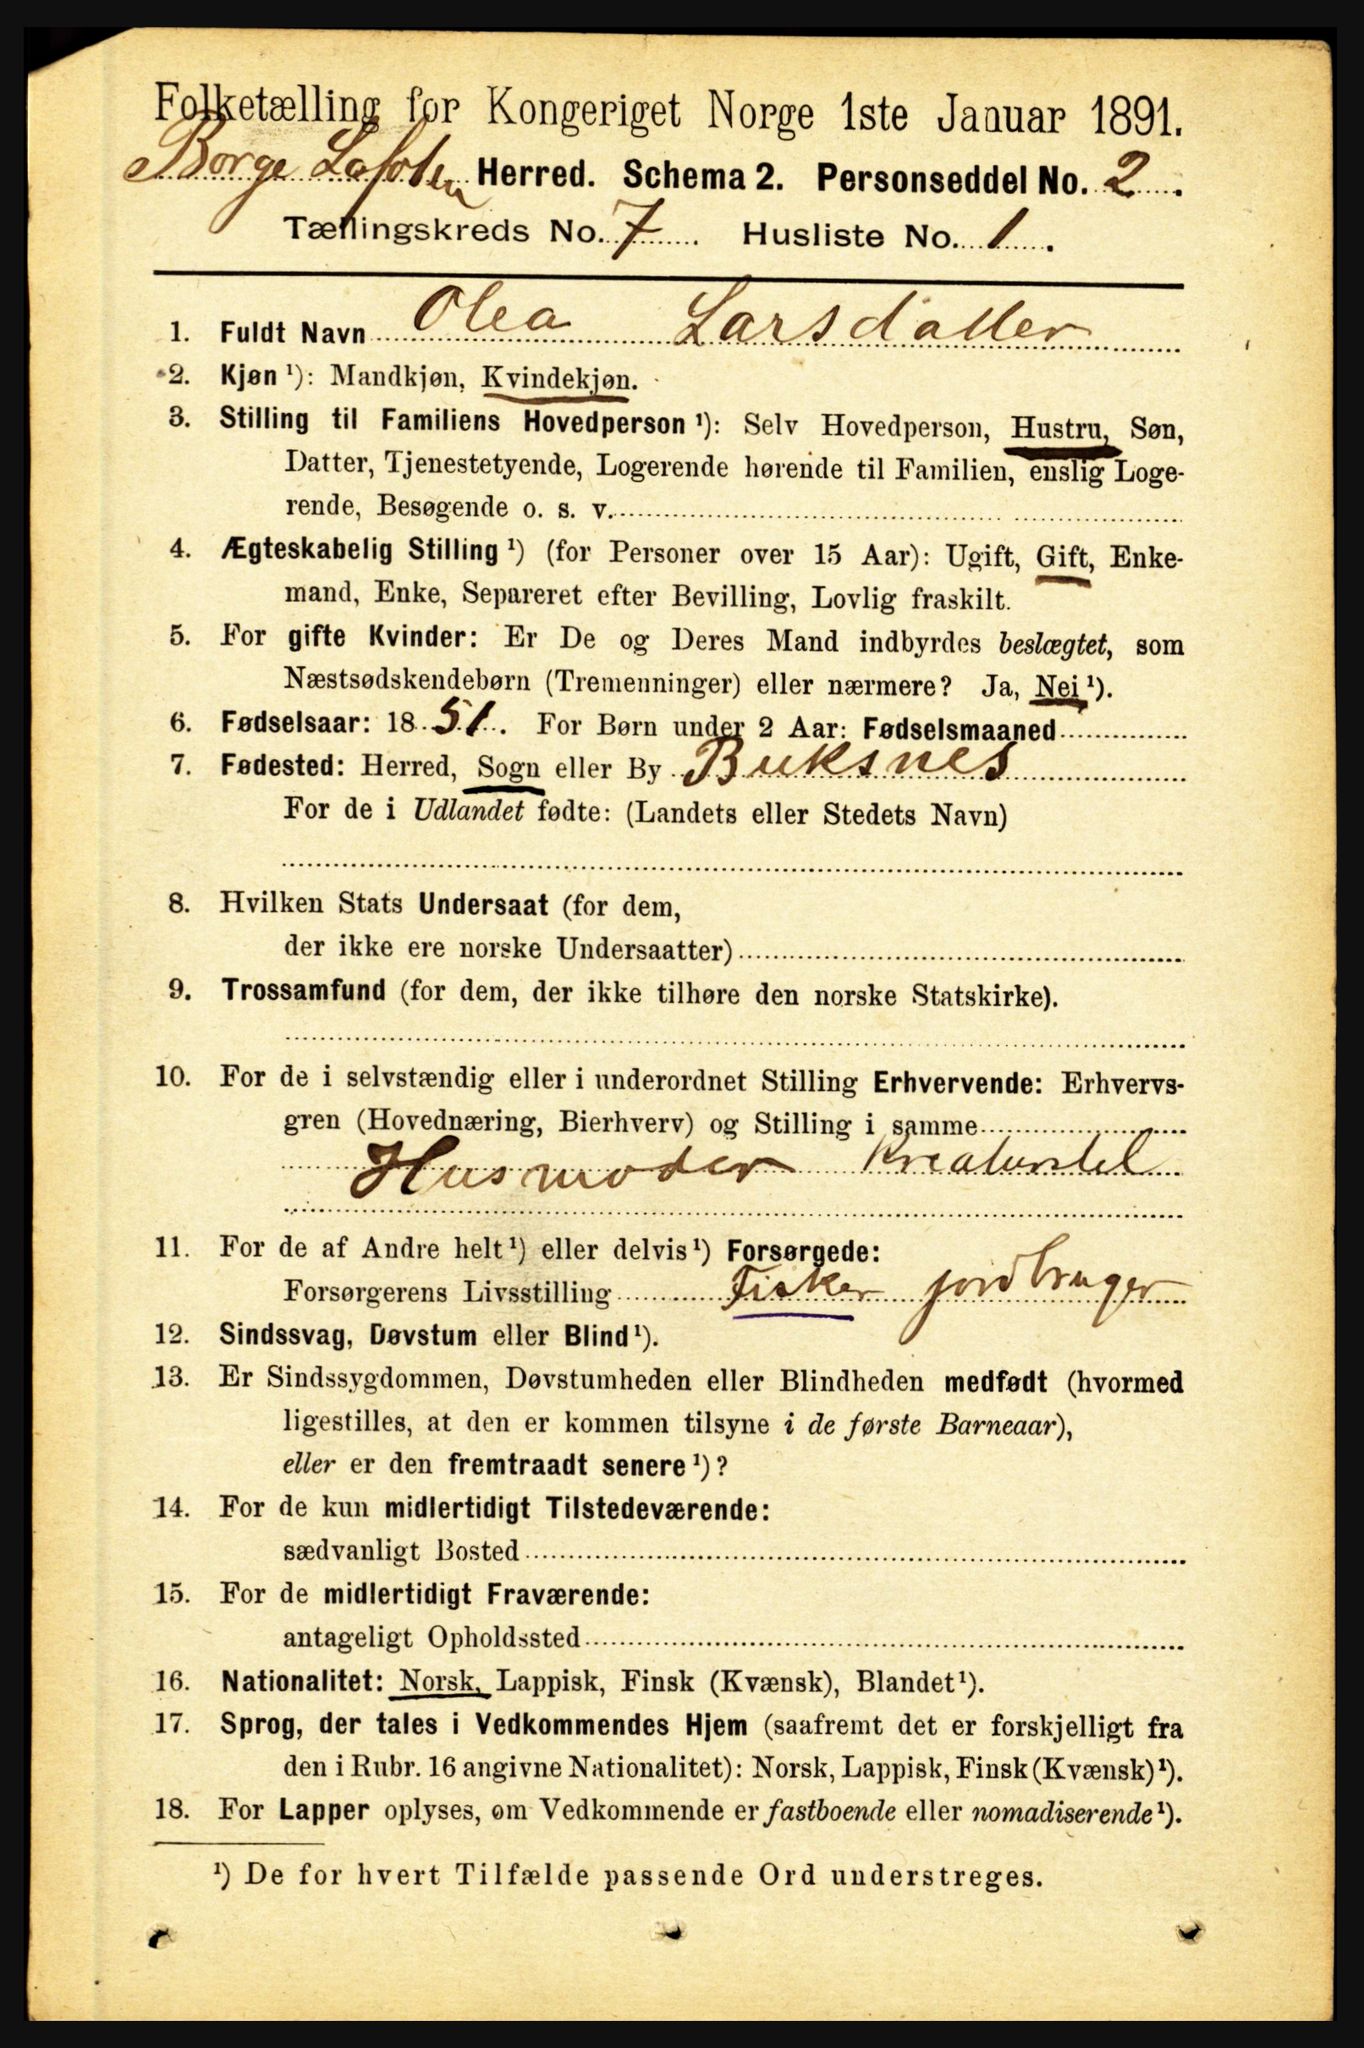 Folketælling for Kongeriget Norge 1ste Januar 1891.
Borge Lofoten Herred. Schema 2. Personseddel No. 2.
Tællingskreds No. 7. Husliste No. 1.
1. Fuldt Navn Olea Larsdatter
2. Kjøn ¹): Mandkjøn, Kvindekjøn.
3. Stilling til Familiens Hovedperson ¹): Selv Hovedperson, Hustru, Søn,
Datter, Tjenestetyende, Logerende hørende til Familien, enslig Loge-
rende, Besøgende o. s. v.
4. Ægteskabelig Stilling ¹) (for Personer over 15 Aar): Ugift, Gift, Enke-
mand, Enke, Separeret efter Bevilling, Lovlig fraskilt.
5. For gifte Kvinder: Er De og Deres Mand indbyrdes beslægtet, som
Næstsødskendebørn (Tremenninger) eller nærmere? Ja, Nei ¹).
6. Fødselsaar: 1851. For Børn under 2 Aar: Fødselsmaaned
7. Fødested: Herred, Sogn eller By Buksnes
For de i Udlandet fødte: (Landets eller Stedets Navn)
8. Hvilken Stats Undersaat (for dem,
der ikke ere norske Undersaatter)
9. Trossamfund (for dem, der ikke tilhøre den norske Statskirke).
10. For de i selvstændig eller i underordnet Stilling Erhvervende: Erhvervs-
gren (Hovednæring, Bierhverv) og Stilling i samme
Husmoder Kreaturstel
11. For de af Andre helt ¹) eller delvis ¹) Forsørgede:
Forsørgerens Livsstilling Fisker jordbruger
12. Sindssvag, Døvstum eller Blind ¹).
13. Er Sindssygdommen, Døvstumheden eller Blindheden medfødt (hvormed
ligestilles, at den er kommen tilsyne i de første Barneaar),
eller er den fremtraadt senere ¹)?
14. For de kun midlertidigt Tilstedeværende:
sædvanligt Bosted
15. For de midlertidigt Fraværende:
antageligt Opholdssted
16. Nationalitet: Norsk, Lappisk, Finsk (Kvænsk), Blandet ¹).
17. Sprog, der tales i Vedkommendes Hjem (saafremt det er forskjelligt fra
den i Rubr. 16 angivne Nationalitet): Norsk, Lappisk, Finsk (Kvænsk) ¹).
18. For Lapper oplyses, om Vedkommende er fastboende eller nomadiserende ¹).
¹) De for hvert Tilfælde passende Ord understreges.